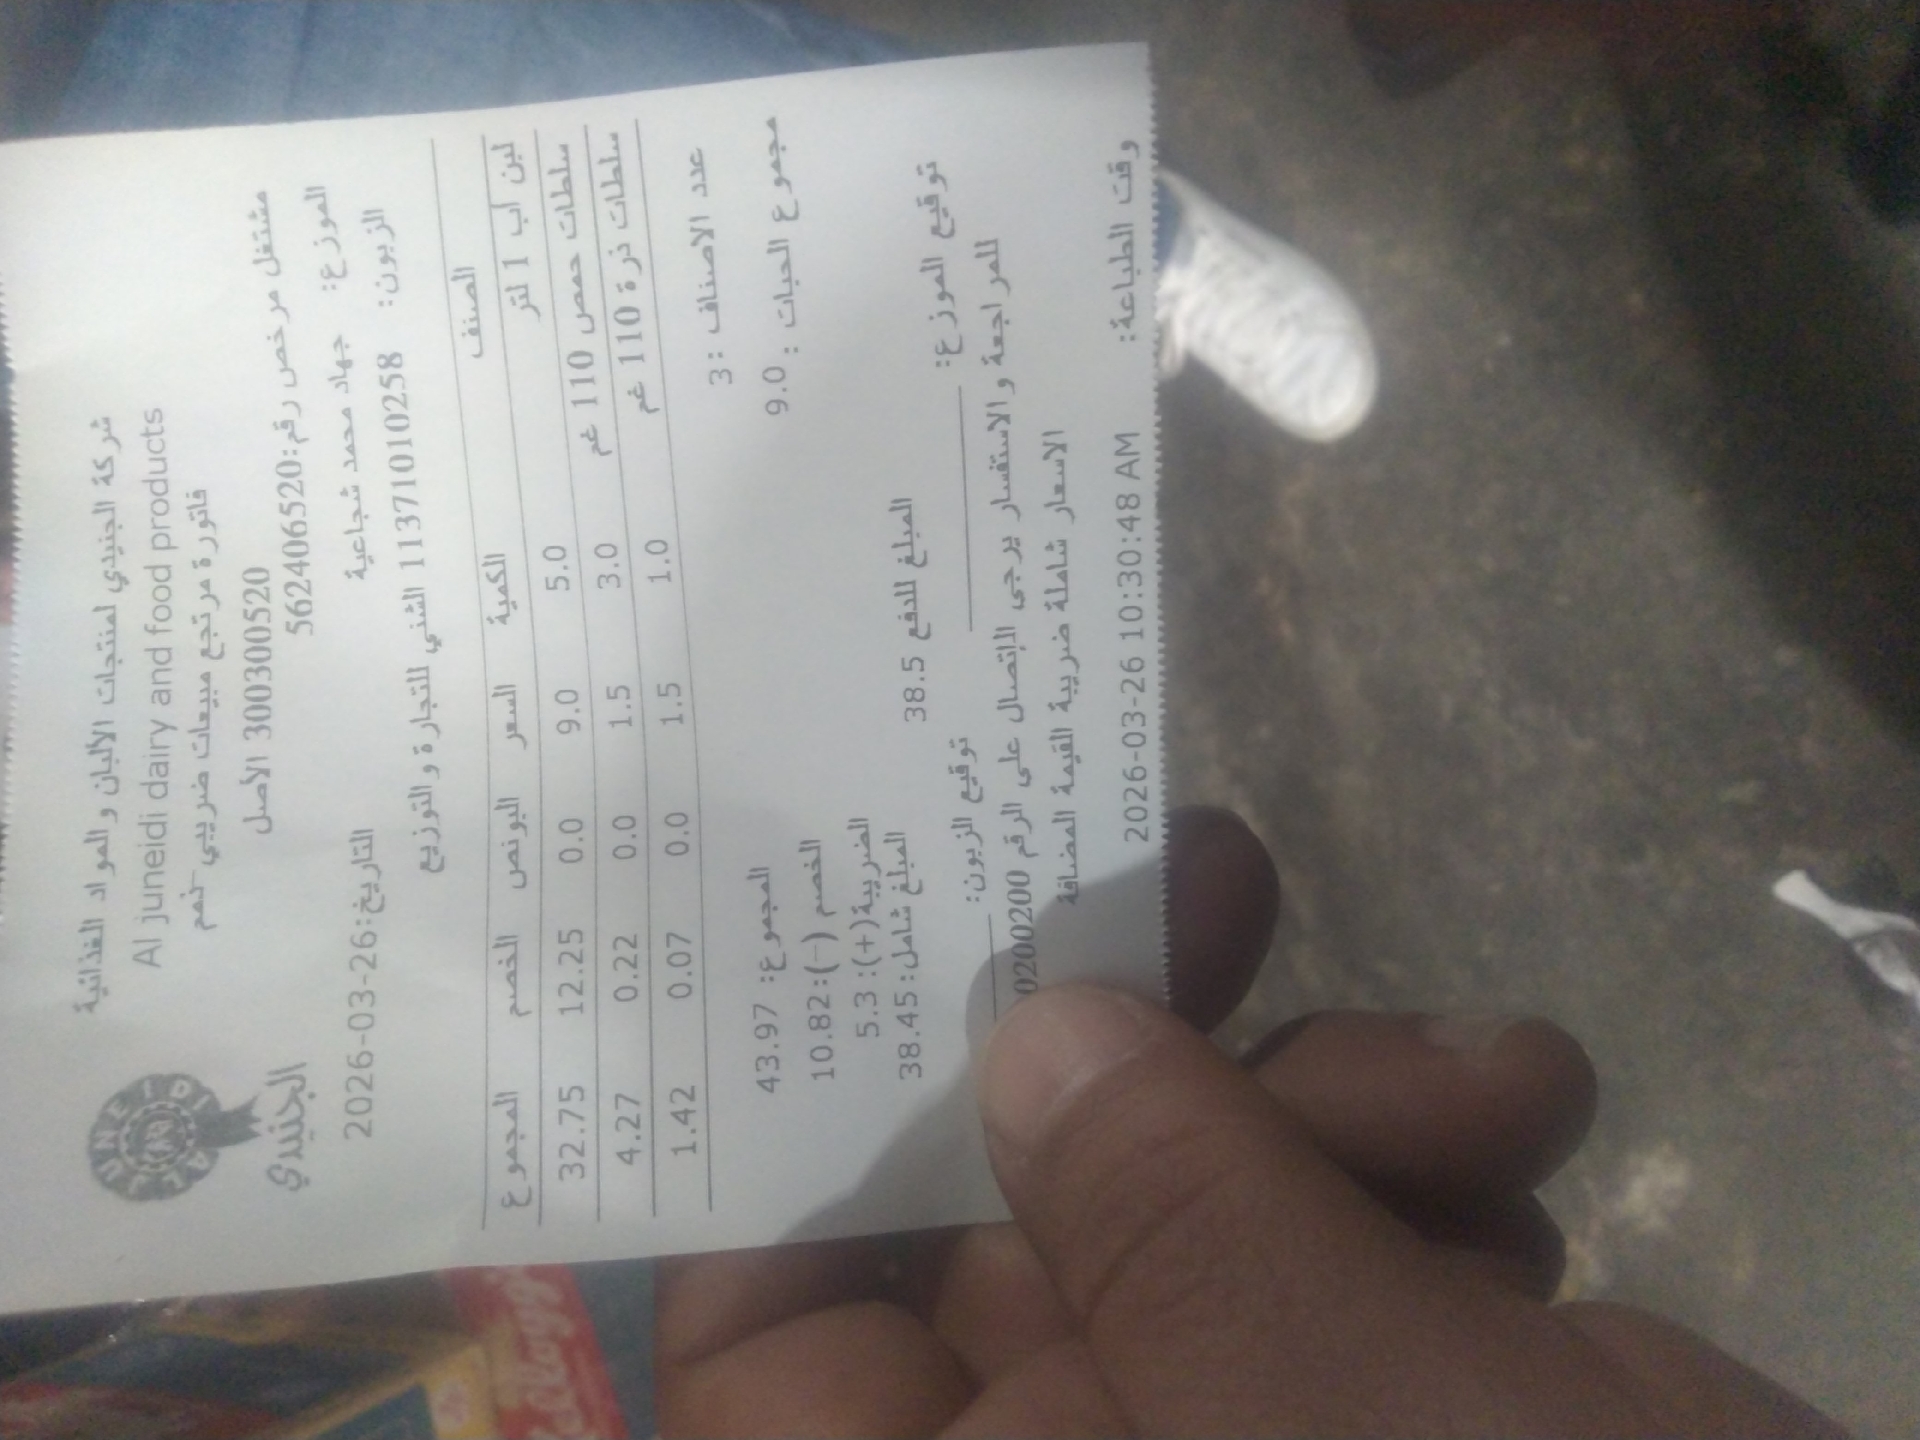 شركة الجنيدي لمنتجات الألبان و المواد الغذائية
Al juneidi dairy and food products
فاتورة مرتجع مبيعات ضريبي
300300520 الأصل
مشتغل مرخص رقم:562406520
الموزع: جهاد محمد شجاعية
التاريخ:26-03-2026
الزبون: 11371010258 الشني للتجارة و التوزيع
AL JUNEIDI
الجنيدي
الصنف الكمية السعر البونص الخصم المجموع
لبن اب 1 لتر 5.0 9.0 0.0 12.25 32.75
سلطات حمص 110 غم 3.0 1.5 0.0 0.22 4.27
سلطات ذرة 110 غم 1.0 1.5 0.0 0.07 1.42
عدد الاصناف : 3
مجموع الحبات : 9.0
المجموع: 43.97
الخصم (-):10.82
الضريبة(+): 5.3
المبلغ شامل: 38.45
المبلغ للدفع 38.5
توقيع الموزع: توقيع الزبون:
للمراجعة والاستفسار يرجى الإتصال على الرقم 0200200
الاسعار شاملة ضريبة القيمة المضافة
وقت الطباعة: 2026-03-26 10:30:48 AM
Kellogg